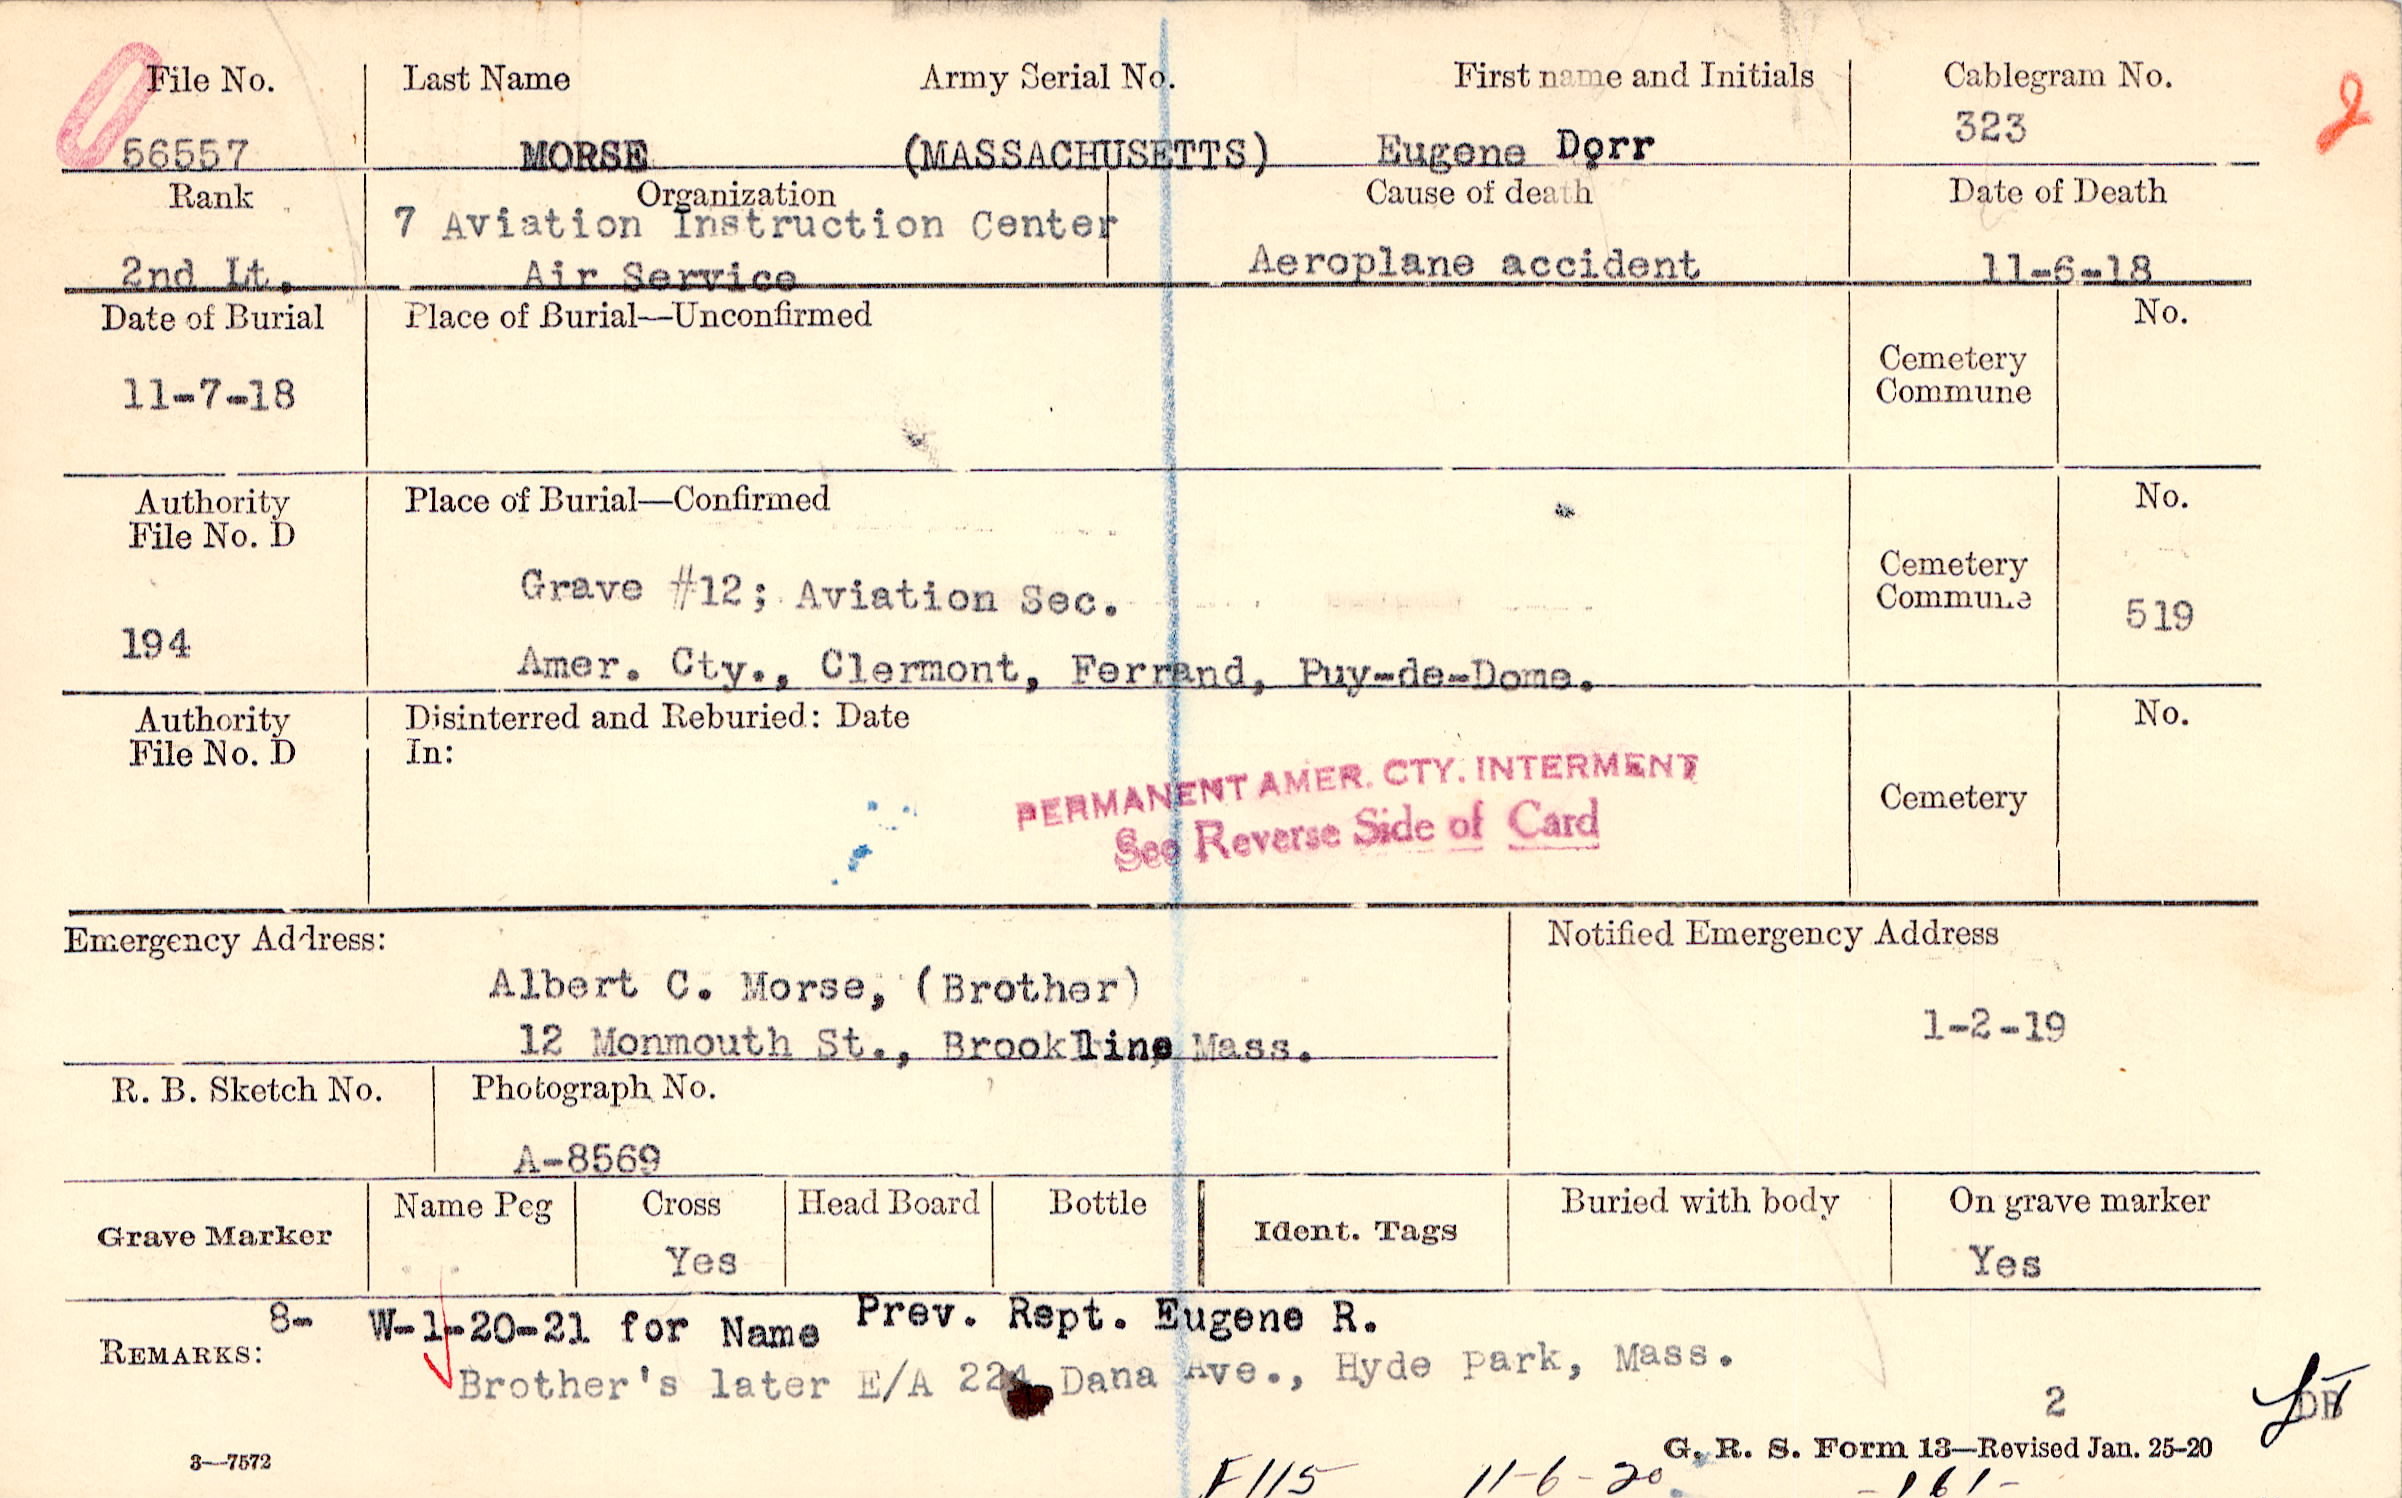 File No. Last Name Army Serial No. First name and Initials Cablegram No.
56557 MORSE (MASSACHUSETTS) Eugene Dorr 323
2
Rank Organization Cause of death Date of Death
7 Aviation Instruction Center
2nd Lt. Air Service Aeroplane accident 11-6-18
Date of Burial Place of Burial—Unconfirmed No.
Cemetery
Commune
11-7-18
Authority Place of Burial—Confirmed No.
File No. D
Cemetery
Commune
Grave #12; Aviation Sec. 519
194
Amer. Cty., Clermont, Ferrand, Puy-de-Dome.
Authority Disinterred and Reburied: Date No.
File No. D In:
PERMANENT AMER. CTY. INTERMENT
See Reverse Side of Card
Cemetery
Emergency Address: Notified Emergency Address
Albert C. Morse, (Brother)
12 Monmouth St., Brookline, Mass. 1-2-19
R. B. Sketch No. Photograph No.
A-8569
Grave Marker Name Peg Cross Head Board Bottle Ident. Tags Buried with body On grave marker
Yes Yes
8- W-1-20-21 for Name Prev. Rept. Eugene R.
REMARKS:
Brother's later E/A 224 Dana Ave., Hyde Park, Mass.
2 DB
G. R. S. Form 13—Revised Jan. 25-20
3—7572
F115 11-6-20 -161-